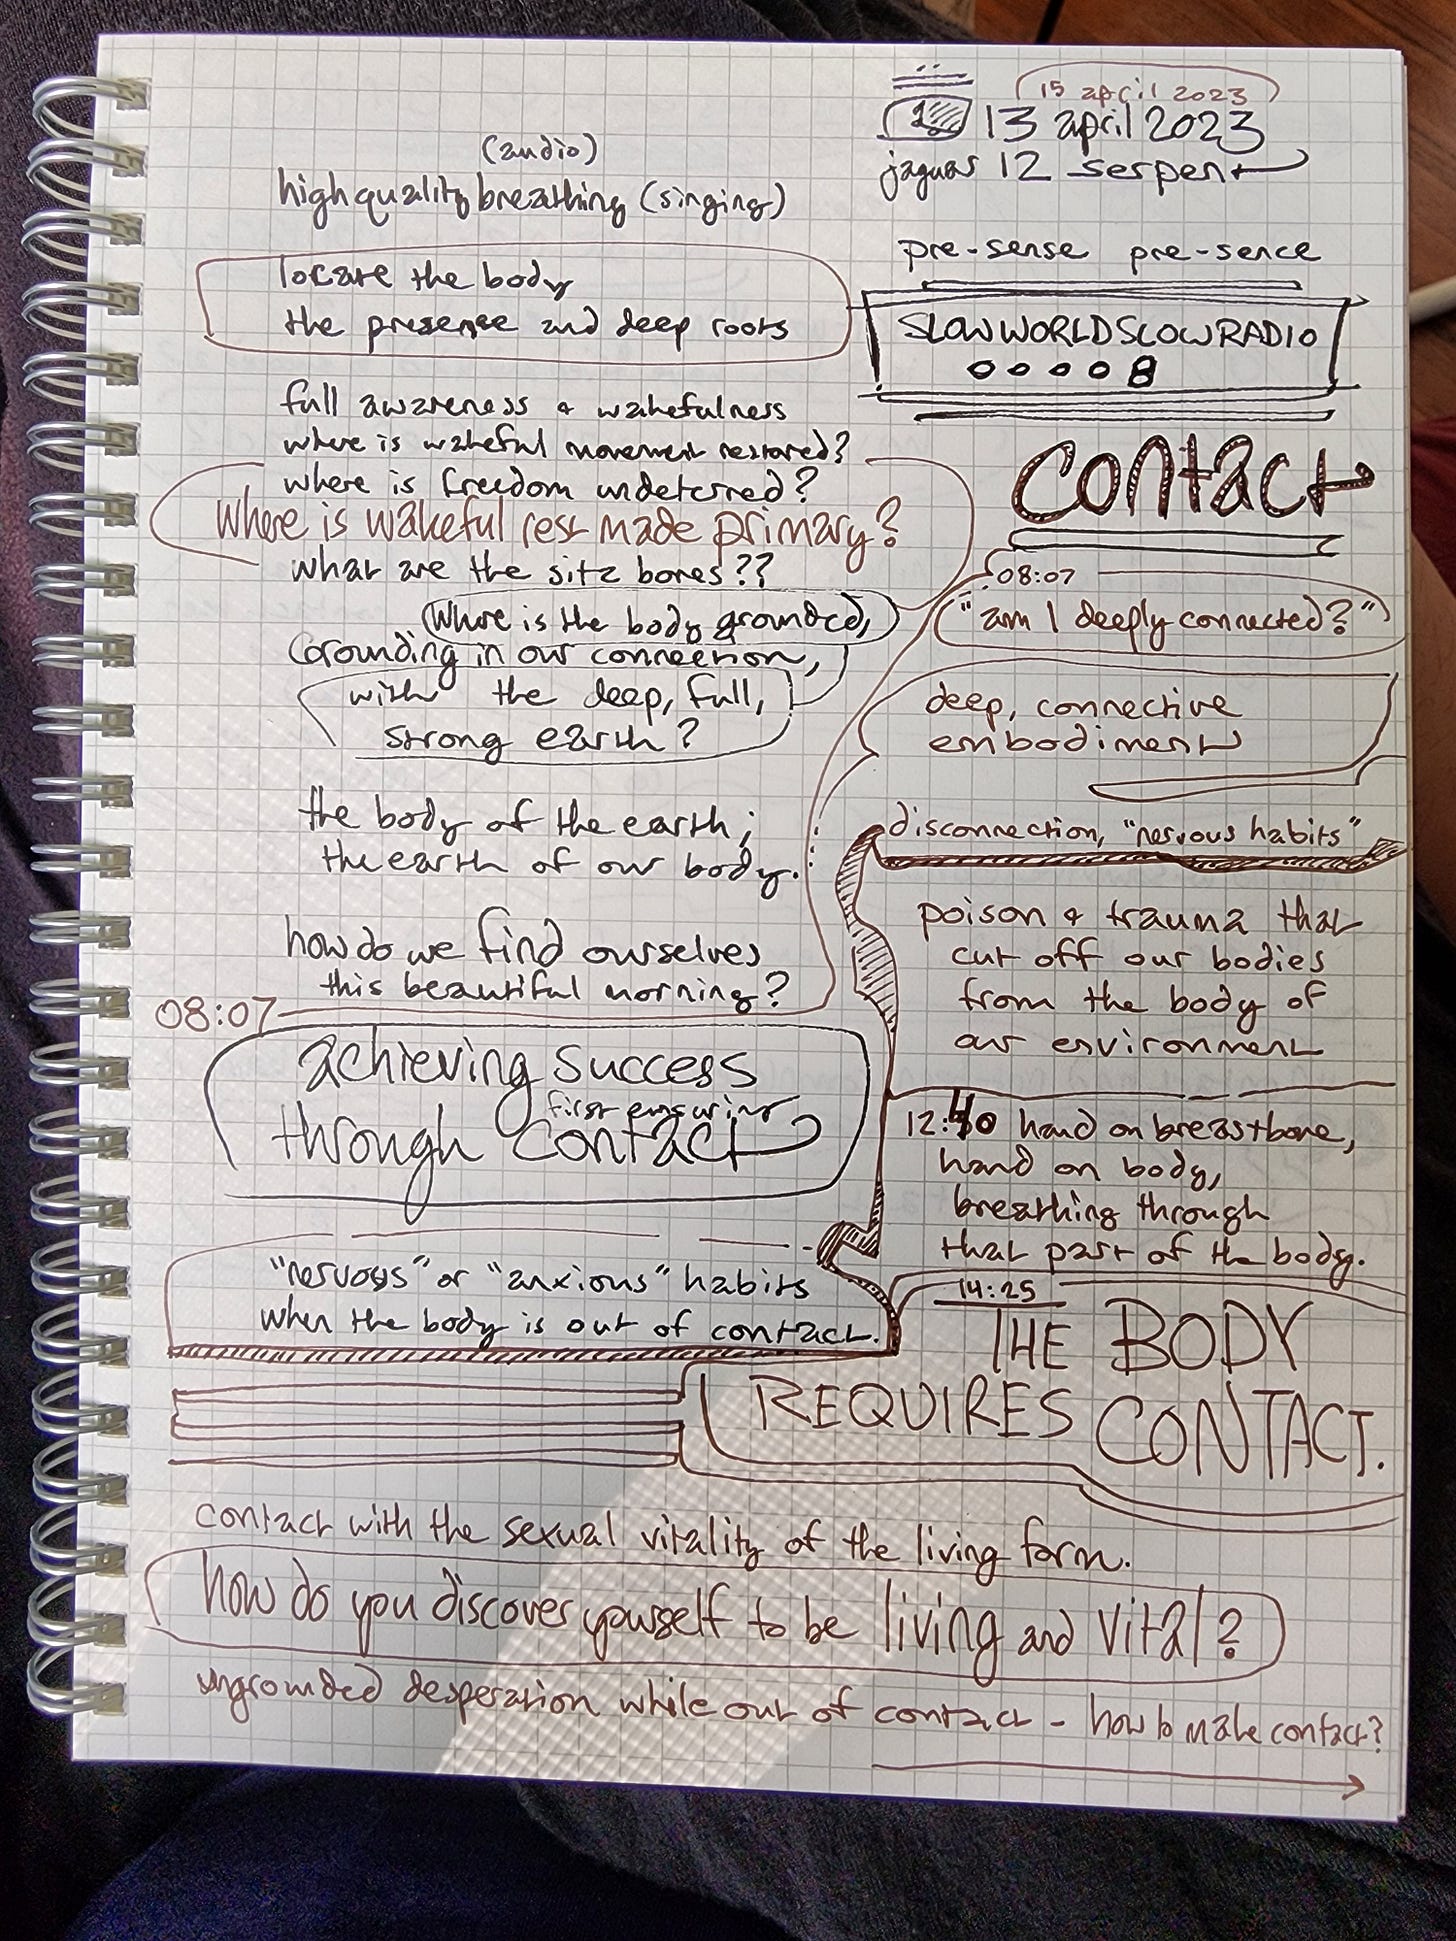 15 april 2023
12 13 april 2023
jaguar 12 serpent
(audio)
high quality breathing (singing)
locare the body
the presense and deep roots
full awareness & wakefulness
where is wakeful movement restored?
where is freedom undeterred?
Where is wakeful rest made primary?
what are the sitz bones??
Where is the body grounded,
Grounding in our connection,
with the deep, full,
strong earth?
the body of the earth;
the earth of our body.
how do we find ourselves
this beautiful morning?
08:07
achieving success
first ensuring
through contact
"nervous" or "anxious" habits
when the body is out of contact.
pre-sense pre-sence
SLOWWORLDSLOWRADIO
00008
contact
08:07
"am I deeply connected?"
deep, connective
embodiment
disconnection, "nervous habits"
poison & trauma that
cut off our bodies
from the body of
our environment
12:40 hand on breastbone,
hand on body,
breathing through
that part of the body.
14:25
THE BODY
REQUIRES CONTACT.
contact with the sexual vitality of the living form.
how do you discover yourself to be living and vital?
ungrounded desperation while out of contact - how to make contact?